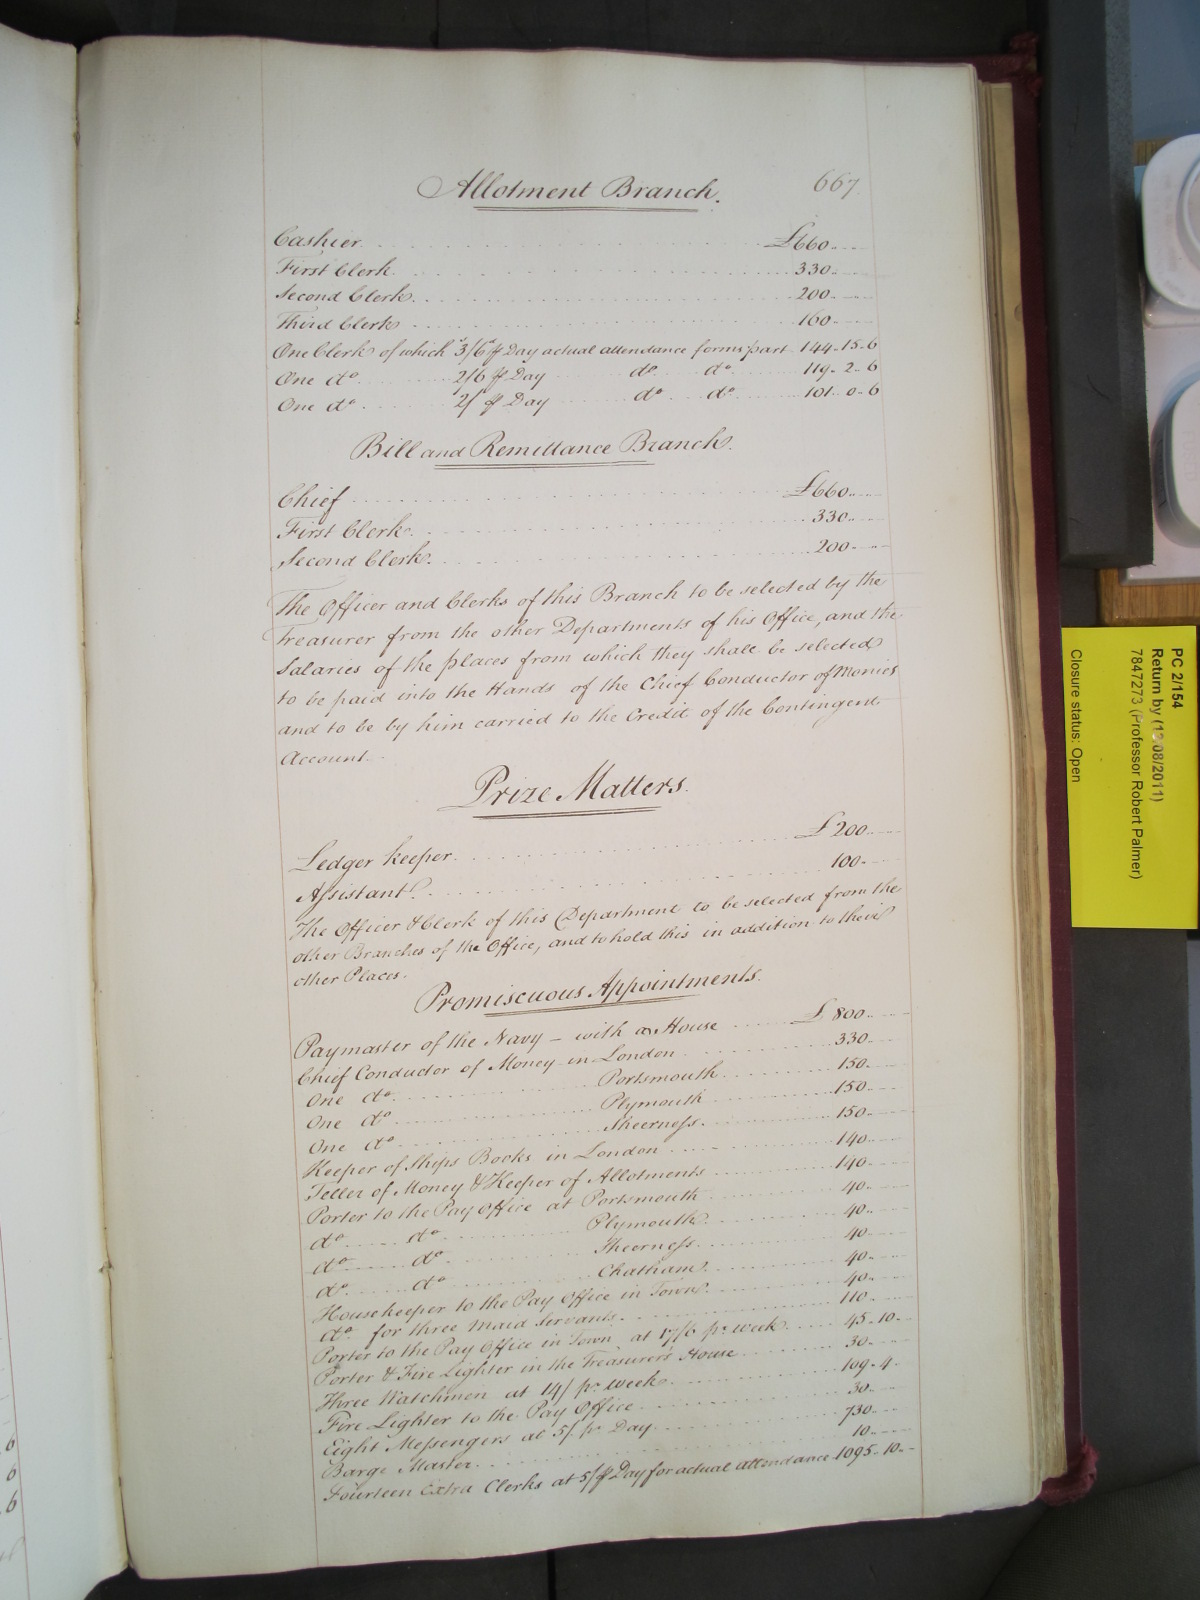 667.
Allotment Branch.
Cashier £660
First Clerk 330
Second Clerk 200
Third Clerk 160
One Clerk of which 3/6 ℔ Day actual attendance forms part 144.15.6
One do. 2/6 ℔ Day do. do. 119.2.6
One do. 2/ ℔ Day do. do. 101.0.6
Bill and Remittance Branch.
Chief £660
First Clerk 330
Second Clerk. 200
The Officer and Clerks of this Branch to be selected by the
Treasurer from the other Departments of his Office, and the
Salaries of the places from which they shall be selected
to be paid into the Hands of the Chief Conductor of Monies
and to be by him carried to the Credit of the Contingent
Account.
Prize Matters.
Ledger keeper £200
Assistant 100
The Officer & Clerk of this Department to be selected from the
other Branches of the Office, and to hold this in addition to their
other Places.
Promiscuous Appointments.
Paymaster of the Navy – with a House £800
Chief Conductor of Money in London 330
One do. Portsmouth 150
One do. Plymouth 150
One do. Sheerness 150
Keeper of Ships Books in London 140
Teller of Money & Keeper of Allotments 140
Porter to the Pay Office at Portsmouth 40
do. do. Plymouth 40
do. do. Sheerness 40
do. do. Chatham 40
Housekeeper to the Pay Office in Town 40
do. for three Maid Servants 110
Porter to the Pay Office in Town at 17/6 pr. week 45.10
Porter & Fire Lighter in the Treasurer's House 30
Three Watchmen at 14/ pr. week 109.4
Fire Lighter to the Pay Office 30
Eight Messengers at 5/ pr. Day 730
Barge Master 10
Fourteen Extra Clerks at 5/ ℔ Day for actual attendance 1095.10
PC 2/154
Return by (12/08/2011)
7847273 (Professor Robert Palmer)
Closure status: Open
6
6
6